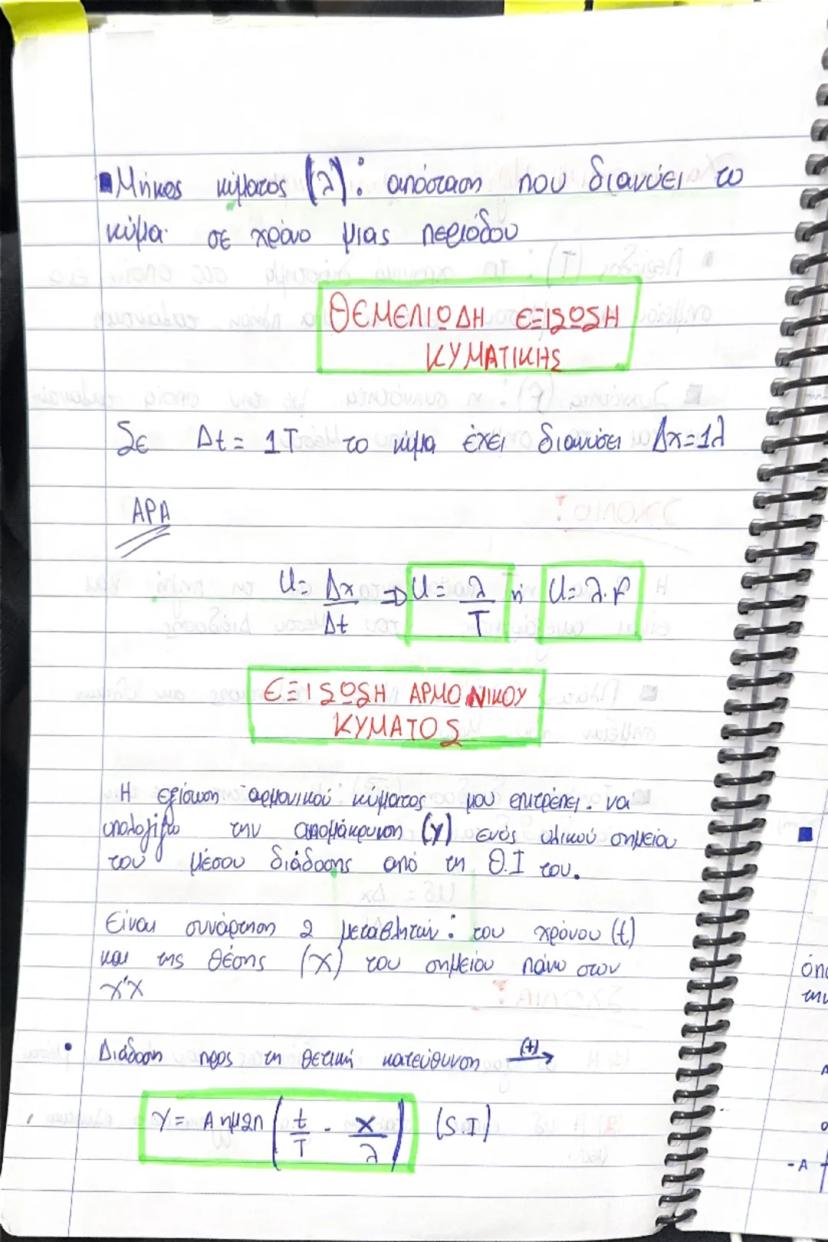 Μήκος κύματος (λ): απόσταση που διανύει το
κύμα σε χρόνο μιας περιόδου
ΘΕΜΕΛΙΩΔΗ ΕΞΙΣΩΣΗ
ΚΥΜΑΤΙΚΗΣ
Σε Δt = 1T το κύμα έχει διανύσει Δx=1λ
ΑΡΑ
U = Δx/Δt ⇒ U = λ/T ή U = λ·f
ΕΞΙΣΩΣΗ ΑΡΜΟΝΙΚΟΥ
ΚΥΜΑΤΟΣ
Η εξίσωση αρμονικού κύματος μου επιτρέπει να
υπολογίζω την απομάκρυνση (y) ενός υλικού σημείου
του μέσου διάδοσης από τη Θ.Ι του.
Είναι συνάρτηση 2 μεταβλητών: του χρόνου (t)
και της θέσης (x) του σημείου πάνω στον
x'x
• Διάδοση προς τη θετική κατεύθυνση (+)→
y = Aημ2π (t/T - x/λ) (S.I)